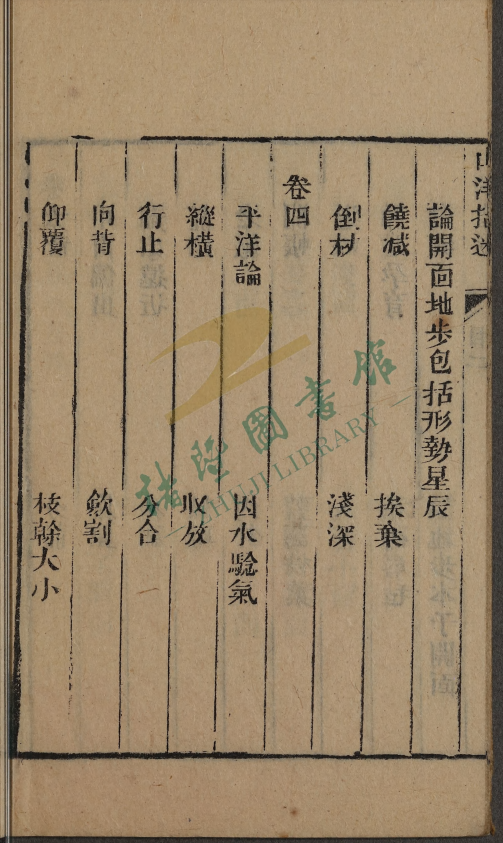 山洋指迷
論開面地步包括形勢星辰
饒減 挨棄
倒杖 淺深
卷四
平洋論 因水驗氣
縱橫 收放
行止 分合
向背 歛割
仰覆 枝幹大小
書隱圖書館
SHUJI LIBRARY